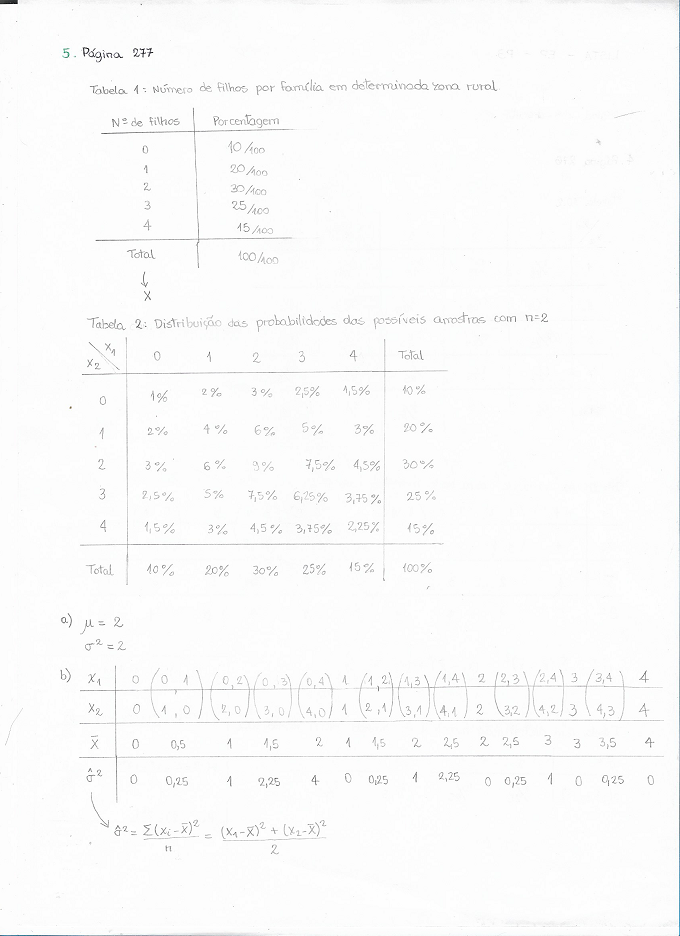 5. Página 277
Tabela 1: Número de filhos por família em determinada zona rural
Nº de filhos Porcentagem
0 10/100
1 20/100
2 30/100
3 25/100
4 15/100
Total 100/100
↓
X
Tabela 2: Distribuição das probabilidades das possíveis amostras com n=2
X₂ \ X₁ 0 1 2 3 4 Total
0 1% 2% 3% 2,5% 1,5% 10%
1 2% 4% 6% 5% 3% 20%
2 3% 6% 9% 7,5% 4,5% 30%
3 2,5% 5% 7,5% 6,25% 3,75% 25%
4 1,5% 3% 4,5% 3,75% 2,25% 15%
Total 10% 20% 30% 25% 15% 100%
a) μ = 2
σ² = 2
b) X₁ 0 (0, 1) (0, 2) (0, 3) (0, 4) 1 (1, 2) (1, 3) (1, 4) 2 (2, 3) (2, 4) 3 (3, 4) 4
X₂ 0 (1, 0) (2, 0) (3, 0) (4, 0) 1 (2, 1) (3, 1) (4, 1) 2 (3, 2) (4, 2) 3 (4, 3) 4
X̄ 0 0,5 1 1,5 2 1 1,5 2 2,5 2 2,5 3 3 3,5 4
σ̂² 0 0,25 1 2,25 4 0 0,25 1 2,25 0 0,25 1 0 0,25 0
σ̂² = Σ(Xi-X̄)²/n = (X₁-X̄)² + (X₂-X̄)²/2